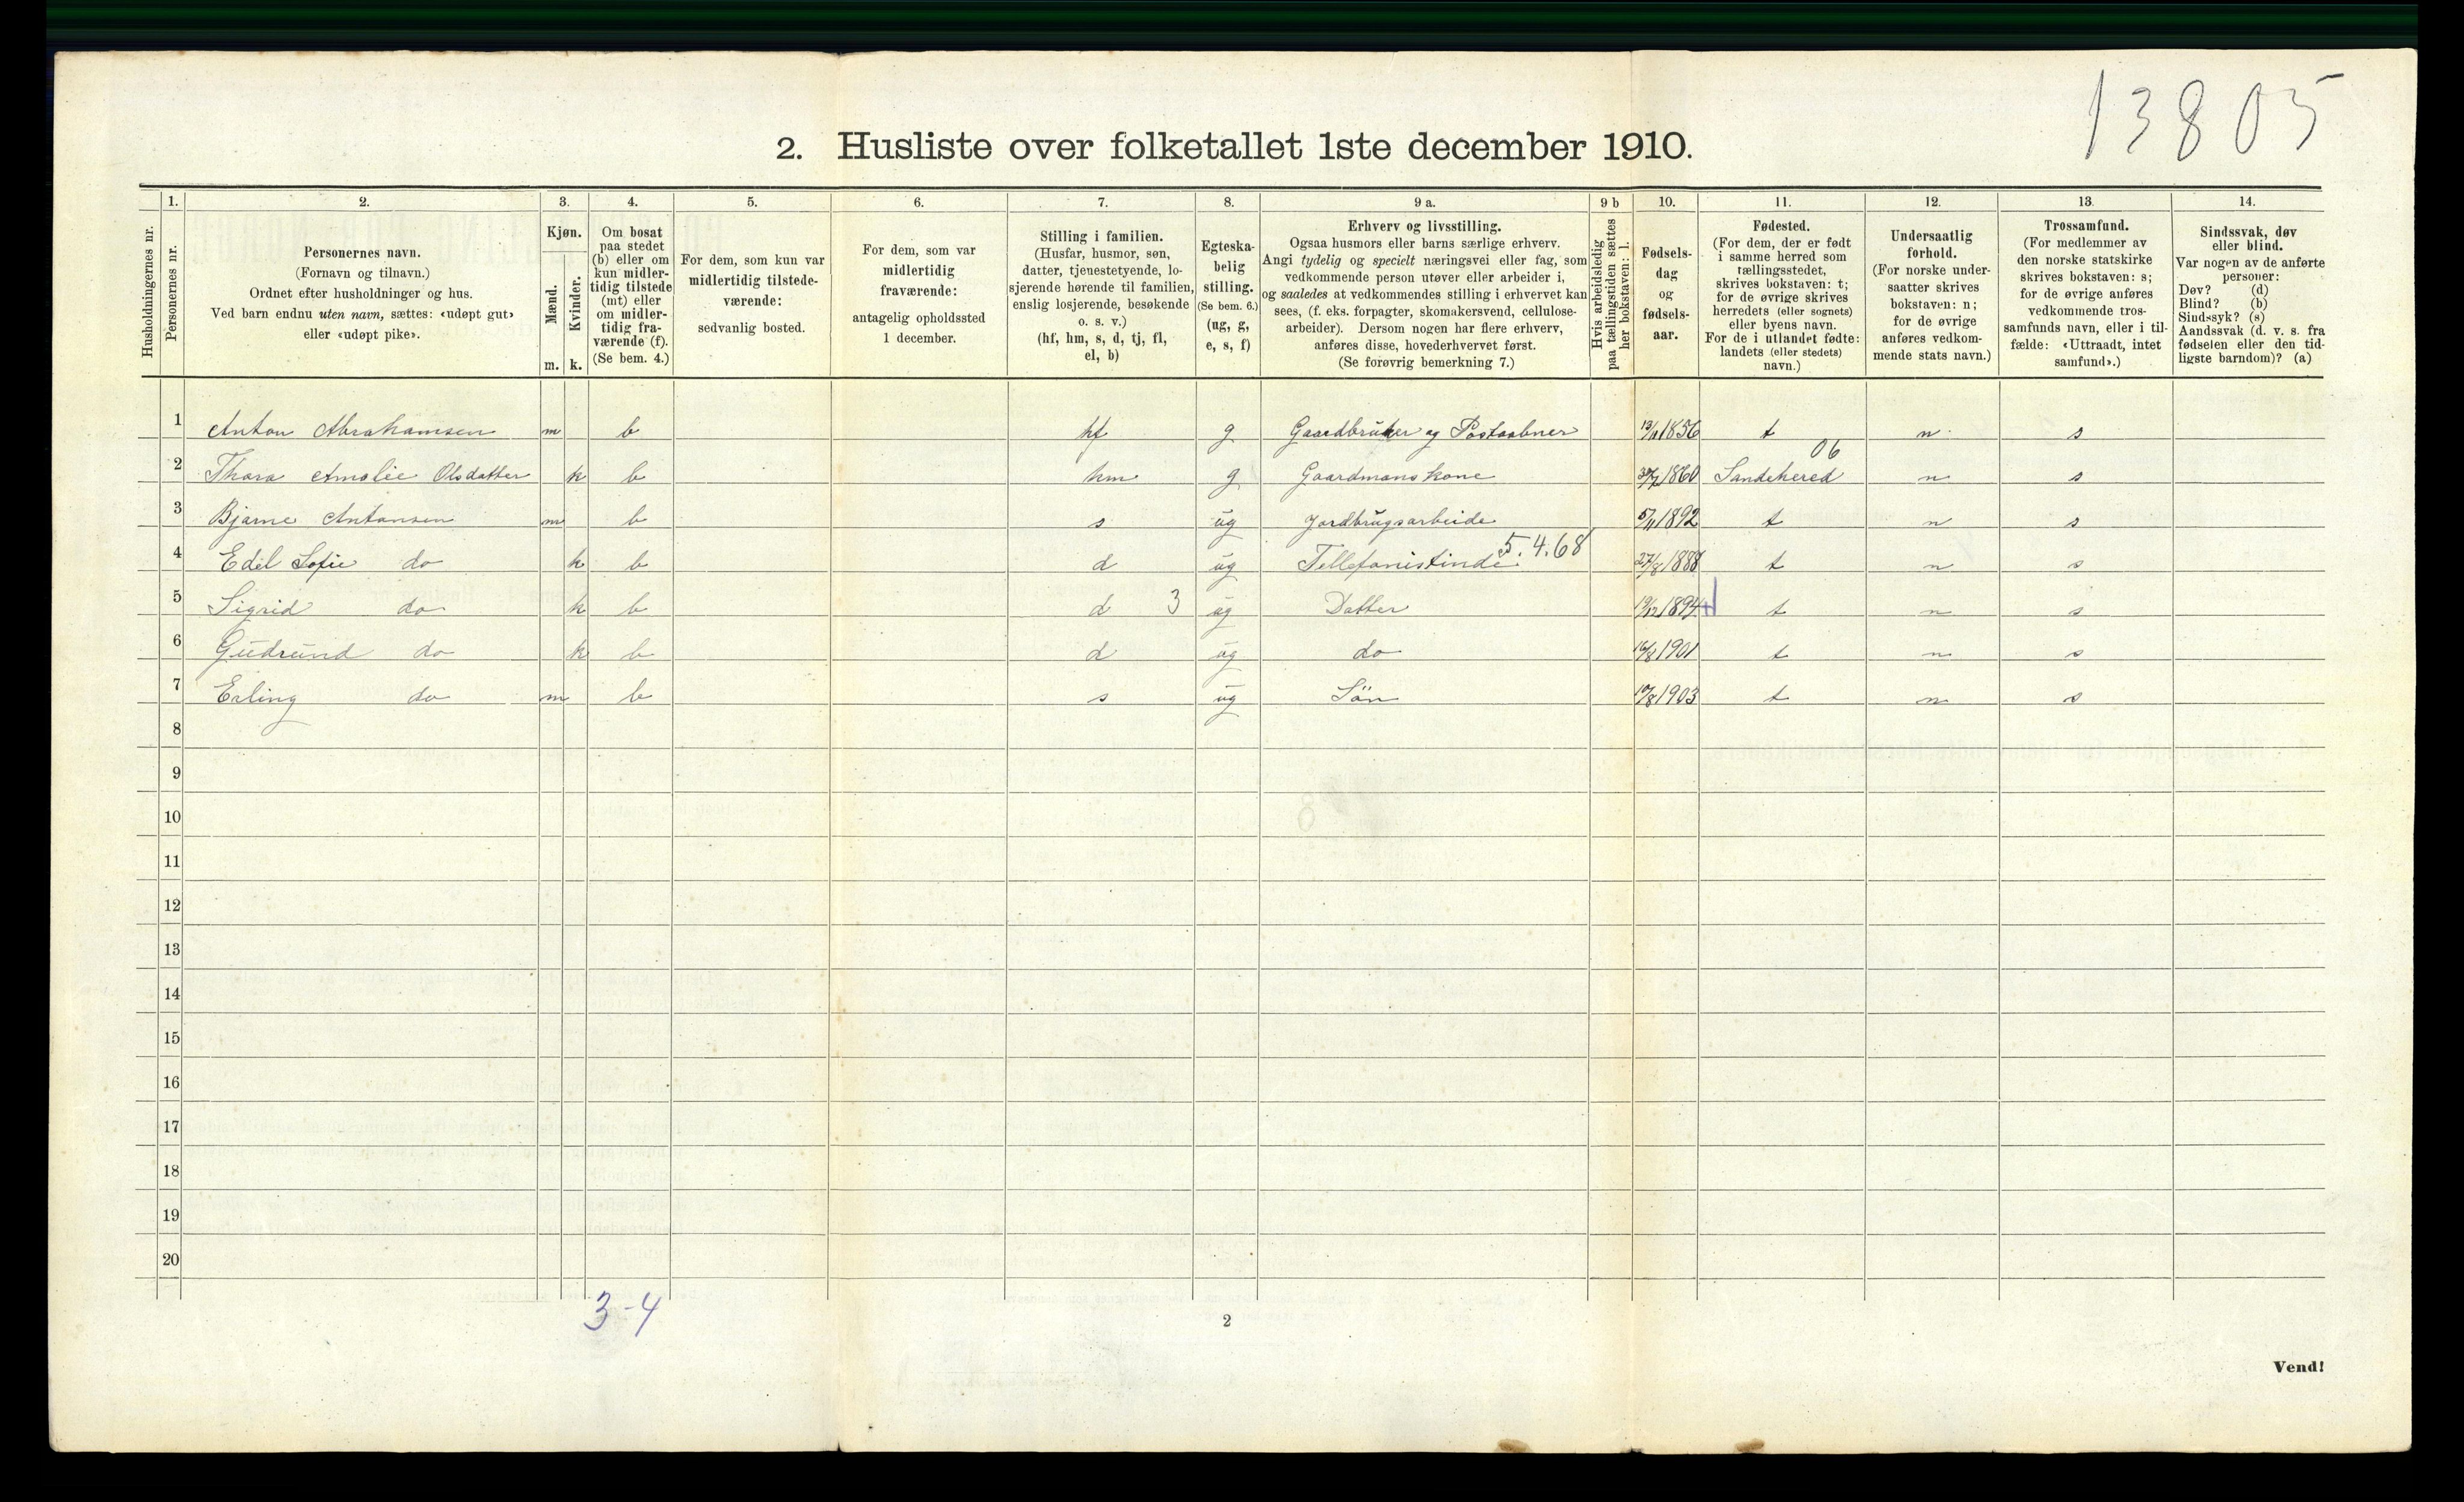 13805
2. Husliste over folketallet 1ste december 1910.
1. 2. 3. 4. 5. 6. 7. 8. 9 a. 9 b 10. 11. 12. 13. 14.
Husholdningernes nr.
Personernes nr.
Personernes navn.
(Fornavn og tilnavn.)
Ordnet efter husholdninger og hus.
Ved barn endnu uten navn, sættes: «udøpt gut»
eller «udøpt pike».
Kjøn.
Mænd.
Kvinder.
m. k.
Om bosat
paa stedet
(b) eller om
kun midler-
tidig tilstede
(mt) eller
om midler-
tidig fra-
værende (f).
(Se bem. 4.)
For dem, som kun var
midlertidig tilstede-
værende:
sedvanlig bosted.
For dem, som var
midlertidig
fraværende:
antagelig opholdssted
1 december.
Stilling i familien.
(Husfar, husmor, søn,
datter, tjenestetyende, lo-
sjerende hørende til familien,
enslig losjerende, besøkende
o. s. v.)
(hf, hm, s, d, tj, fl,
el, b)
Egteska-
belig
stilling.
(Se bem. 6.)
(ug, g,
e, s, f)
Erhverv og livsstilling.
Ogsaa husmors eller barns særlige erhverv.
Angi tydelig og specielt næringsvei eller fag, som
vedkommende person utøver eller arbeider i,
og saaledes at vedkommendes stilling i erhvervet kan
sees, (f. eks. forpagter, skomakersvend, cellulose-
arbeider). Dersom nogen har flere erhverv,
anføres disse, hovederhvervet først.
(Se forøvrig bemerkning 7.)
Hvis arbeidsledig
paa tællingstiden sættes
her bokstaven: l.
Fødsels-
dag
og
fødsels-
aar.
Fødested.
(For dem, der er født
i samme herred som
tællingsstedet,
skrives bokstaven: t;
for de øvrige skrives
herredets (eller sognets)
eller byens navn.
For de i utlandet fødte:
landets (eller stedets)
navn.)
Undersaatlig
forhold.
(For norske under-
saatter skrives
bokstaven: n;
for de øvrige
anføres vedkom-
mende stats navn.)
Trossamfund.
(For medlemmer av
den norske statskirke
skrives bokstaven: s;
for de øvrige anføres
vedkommende tros-
samfunds navn, eller i til-
fælde: «Uttraadt, intet
samfund».)
Sindssvak, døv
eller blind.
Var nogen av de anførte
personer:
Døv? (d)
Blind? (b)
Sindssyk? (s)
Aandssvak (d. v. s. fra
fødselen eller den tid-
ligste barndom)? (a)
1 Anton Abrahamsen m b hf g Gaardbruker og Postaabner 1856 t n s
06
2 Thora Amalie Olsdatter k b hm g Gaardmanskone 1860 Sandehered n s
3 Bjarne Antonsen m b s ug Jordbrugsarbeide 5/11 1892 t n s
5.4.68
4 Edel Sofie do k b d ug Tellefonistinde 27/8 1888 t n s
5 Sigrid do k b d 3 ug Datter 19/12 1894 t n s
6 Gudrund do k b d ug do 16/8 1901 t n s
7 Erling do m b s ug Sön 1903 t n s
8
9
10
11
12
13
14
15
16
17
18
19
20
3-4
2
Vend!